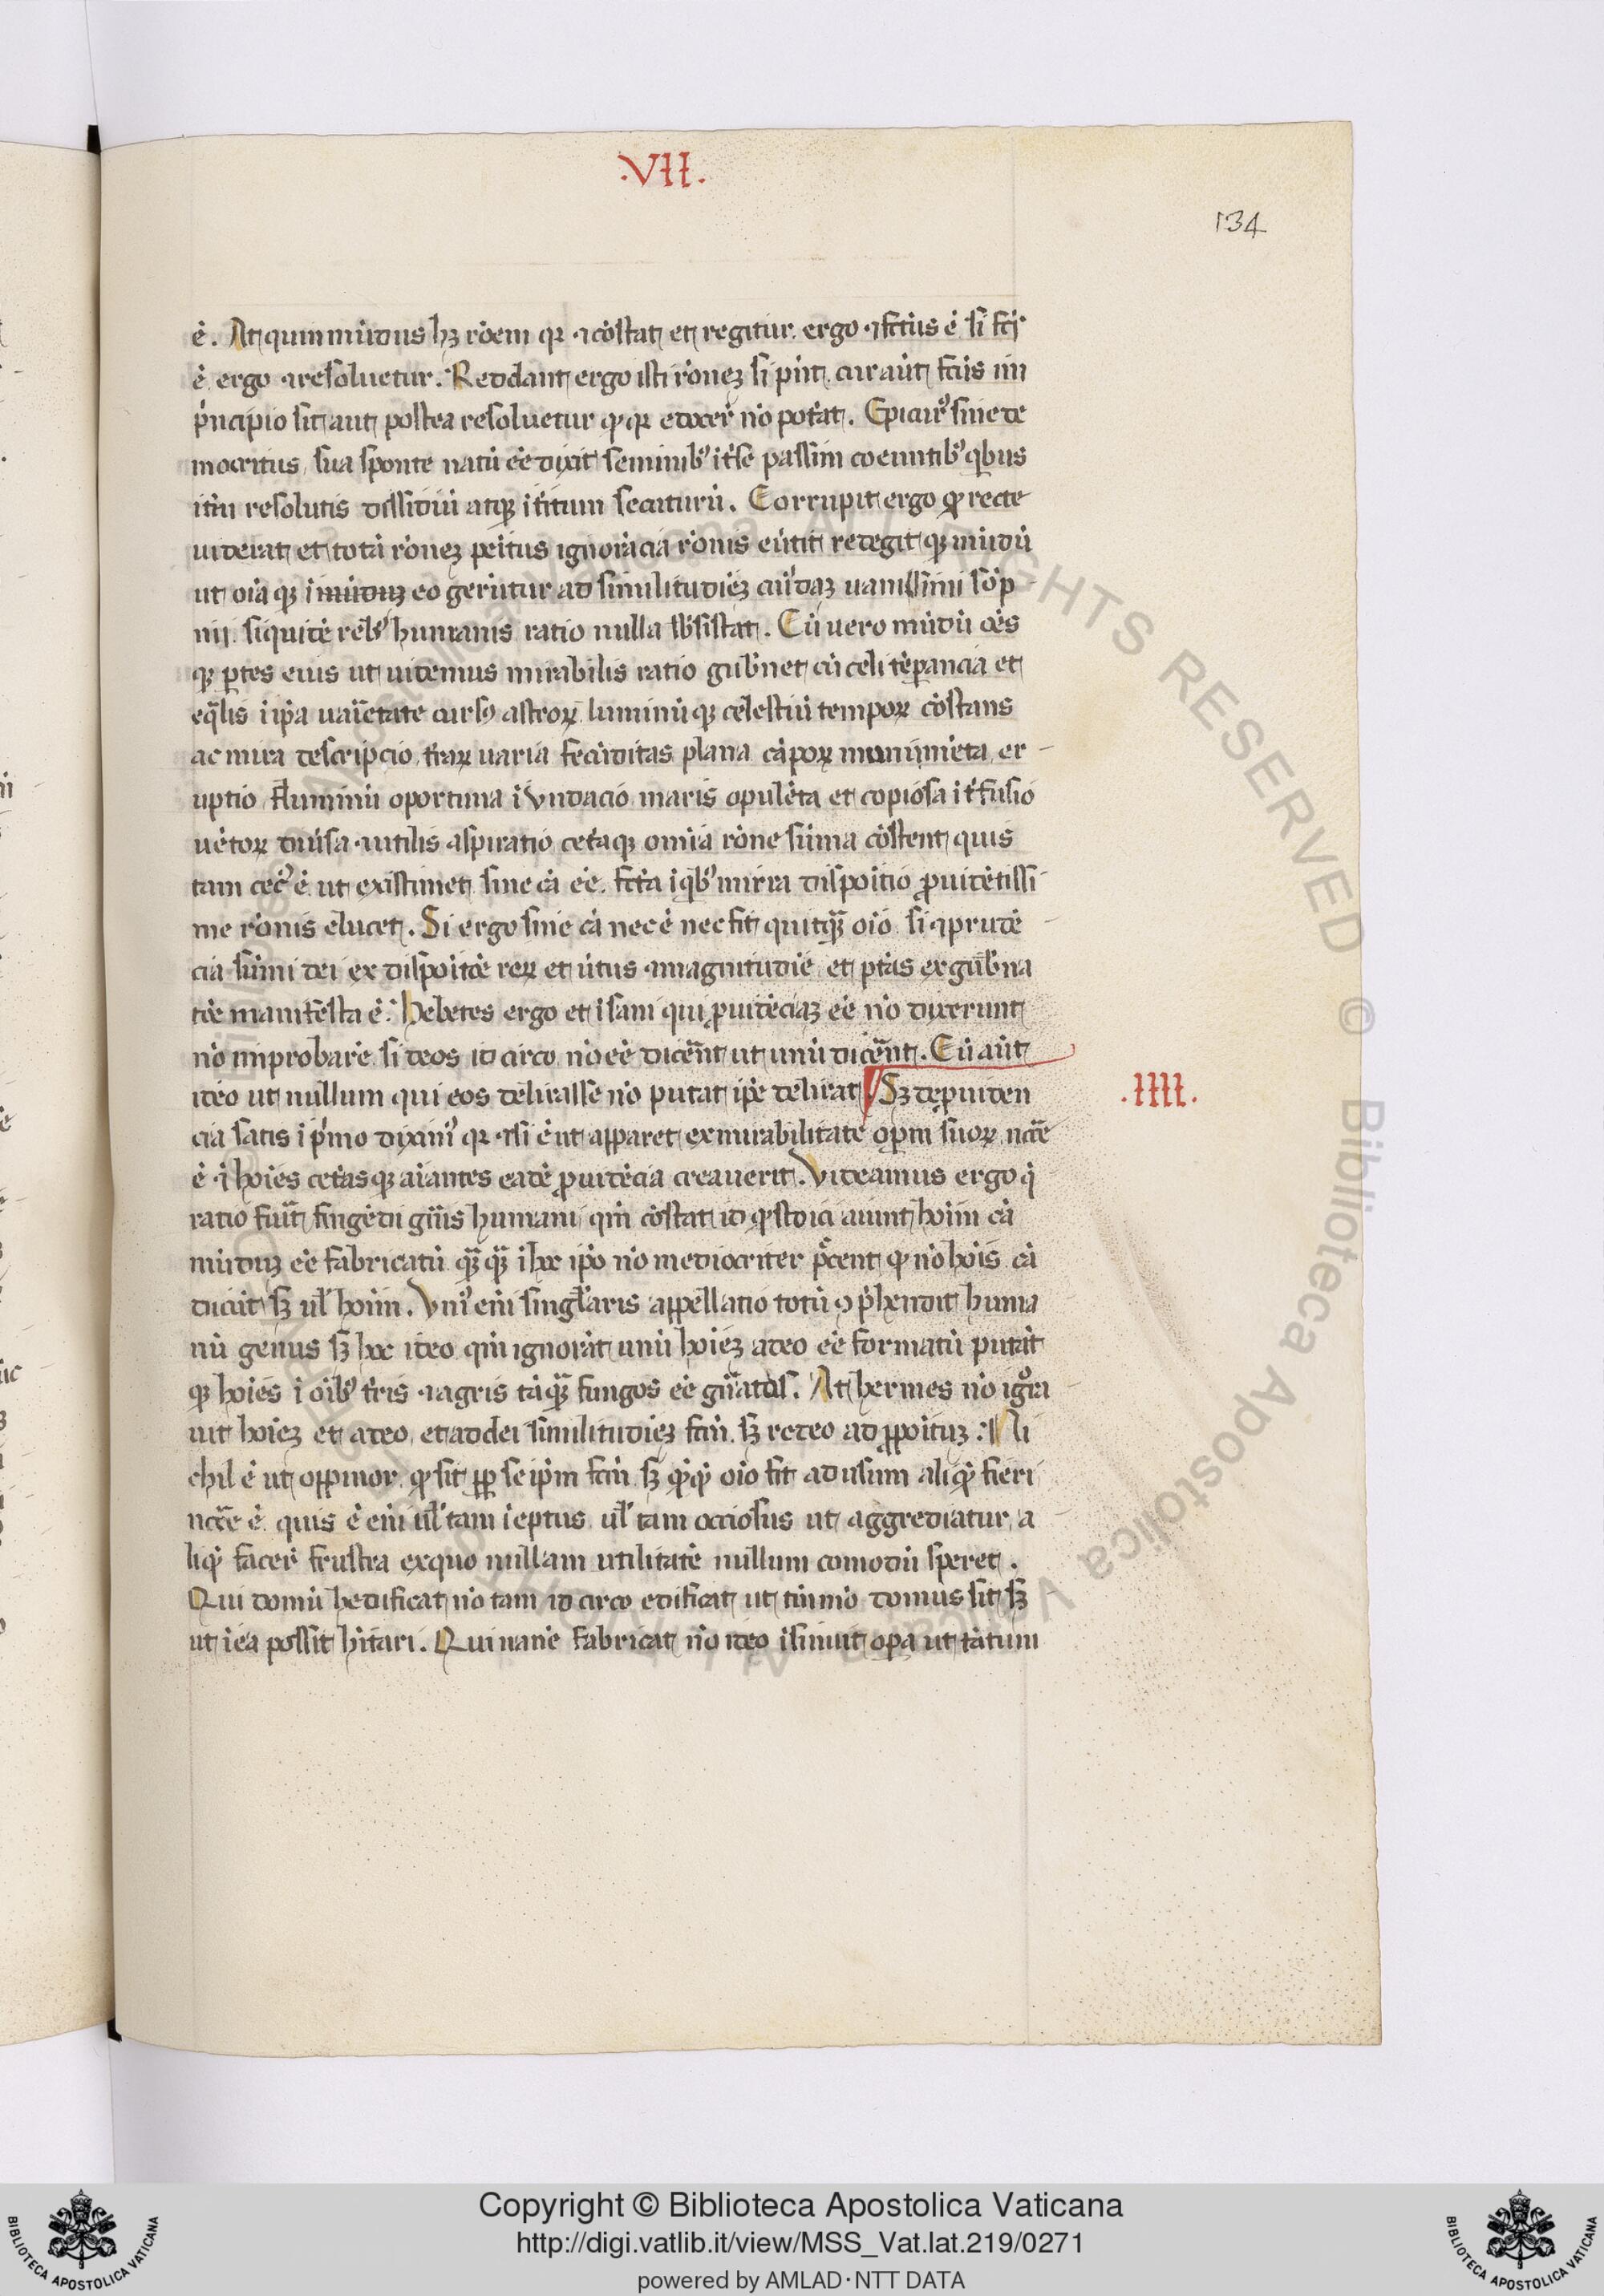 .VII.
134
ē. At qui mūdus hꝫ rōem qꝛ ⁊ cōstat et regitur. ergo ⁊ fctūs ē si fctꝰ
ē ergo ⁊ resoluetur. Reddant ergo isti rōneꝫ si pn̄t. cur aūt fctūs in
pⁱncipio sit aut postea resoluetur qꝫ qꝛ edocer̄ nō poterat. Epicurꝰ siue de
mocritus sua sponte natū eē dixit seminibꝰ it̄ se passim coeuntibꝰ qⁱbus
itm̄ resolutis dissidiū atqꝫ it̄itum secuturū. Corrupit ergo qd̄ recte
uiderat et totā rōneꝫ penitus ignorācia rōnis eūtit redegit qꝫ mūdū
ut oīa qꝫ ī mūduꝫ eo gerūtur ad similitudīeꝫ cuiꝰdaꝫ uanissimi sōp
nij. siquidē rebꝰ humanis ratio nulla sb̄sistat. Cū uero mūdū oēs
qꝫ ꝑtes eius ut uidemus mirabilis ratio gub̄net cū celi tēꝑancia et
eq̄lis ī ip̄a uarietate cursꝰ astroꝝ luminū qꝫ celestiū tempoꝝ cōstans
ac mira descripcio. tr̄aꝝ uaria fecūditas plana cāpoꝝ munimēta er
uptio fluminū oportuna īundacio maris opulēta et copiosa it̄fusio
uētoꝝ diūsa ⁊ utilis aspiratio cet̄aqꝫ omīa rōne sūma cōstent quis
tam cecꝰ ē ut existimet sine cā eē. fctā ī qⁱbꝰ mira dispoitio ꝓuidētissi
me rōnis elucet. Si ergo sine cā nec ē nec fit quitq̄ oīo si ꝓrudē
cia sūmi dei ex dispoitōe reꝝ et ūtus ⁊ magnitudīe et ptās ex gub̄na
tōe manifesta ē. Hebetes ergo et īsani qui ꝓuidēciaꝫ eē nō dixerunt
nō improbarē si deos id circo nō eē dicērt ut unū dicēnt. Cū aūt
ideo ut nullum qui eos delirasse nō putat ip̄e delirat ¶ Sꝫ de ꝓuiden
.IIII.
cia satis ī pⁱmo diximꝰ qꝛ ⁊ si ē ut apparet ex mirabilitate oꝑm suoꝝ nccē
ē ⁊ hoīes cet̄as qꝫ aīantes eadē ꝓuidēcia creauerit. Uideamus ergo q̄
ratio fuīt fingēdi gn̄is humani qm̄ cōstat id qd̄ stoici aiunt hoīm cā
mūduꝫ eē fabricatū qq̄ ī hoc ip̄o nō mediocriter pccent qd̄ nō hoīs cā
dicūt sꝫ ul̄ hoīm. Unīꝰ eni singl̄aris appellatio totū ꝯp̄hendit huma
nū genus sꝫ hoc ideo qm̄ ignorāt unū hoīeꝫ a deo eē formatū putāt
qꝫ hoīes ī oībꝰ tr̄is ⁊ agris tāqꝫ fungos eē gn̄atos. At hermes nō igͦra
uit hoīeꝫ et a deo et ad dei similitudīeꝫ fcm̄. sꝫ redeo ad ꝓpoituꝫ. Ni
chil ē ut oppinor qd̄ sit ꝓꝑ seip̄m fcm̄. sꝫ qⁱcqⁱd oīo fit ad usum aliqⁱ fieri
nccē ē. quis ē eni ul̄ tam īeptus ul̄ tam occiosus ut aggrediatur a
liqⁱd facer̄ frustra ex quo nullam utilitatē nullum comodū speret.
Qui domū hedificat nō tam id circo edificat ut tm̄mō domus sit sꝫ
ut ī ea possit hītari. Qui nauē fabricat nō ideo īsumit oꝑa ut tātum
Copyright © Biblioteca Apostolica Vaticana
http://digi.vatlib.it/view/MSS_Vat.lat.219/0271
powered by AMLAD·NTT DATA